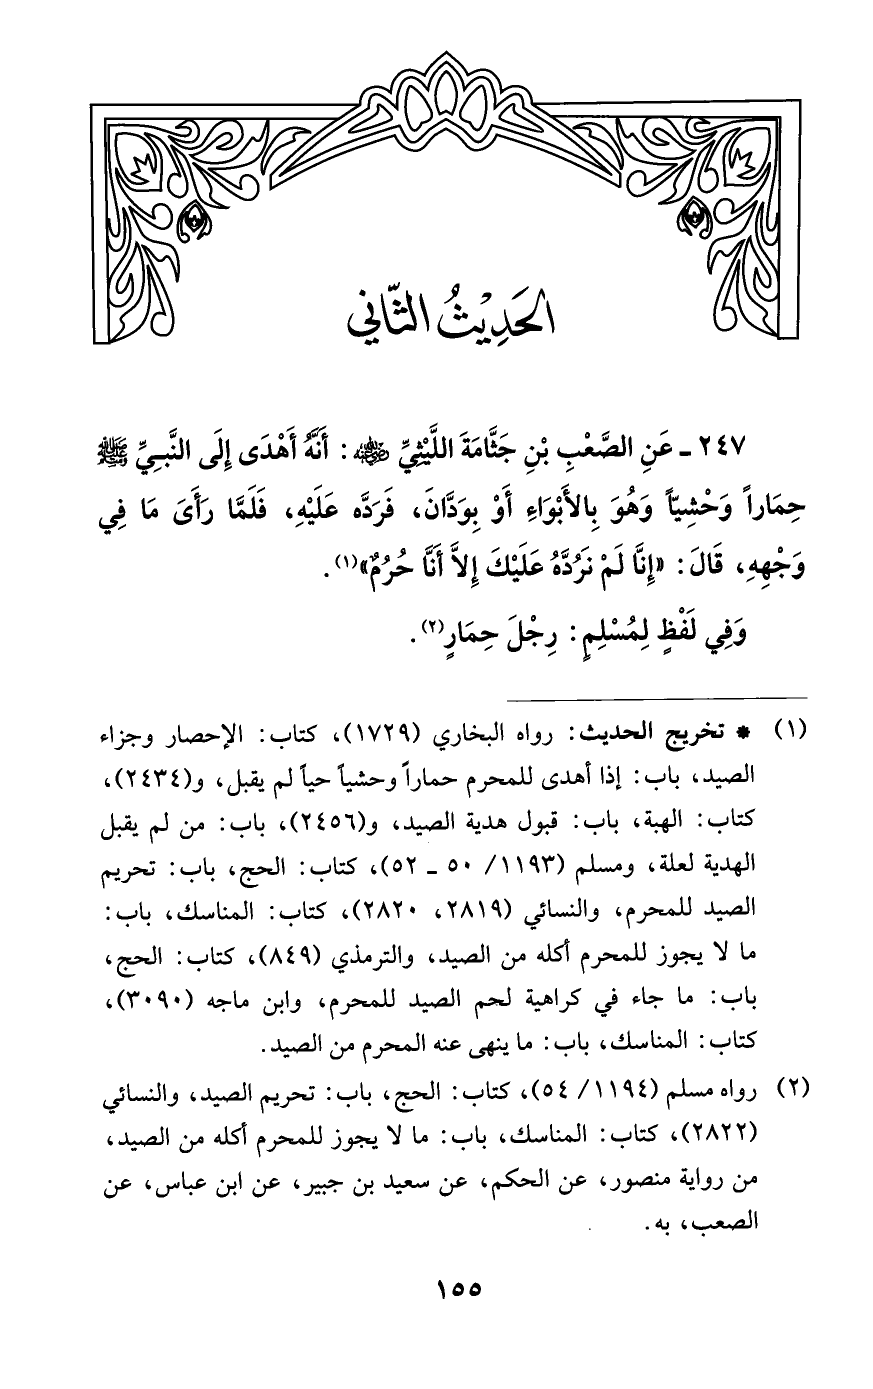 الحَدِيْثُ الثَّانِي
٢٤٧ ـ عَنِ الصَّعْبِ بْنِ جَثَّامَةَ اللَّيْثِيِّ ﵁: أَنَّهُ أَهْدَى إِلَى النَّبِيِّ ﷺ
حِمَاراً وَحْشِيّاً وَهُوَ بِالأَبْوَاءِ أَوْ بِوَدَّانَ، فَرَدَّه عَلَيْهِ، فَلَمَّا رَأَىَ مَا فِي
وَجْهِهِ، قَالَ: «إِنَّا لَمْ نَرُدَّهُ عَلَيْكَ إِلاَّ أَنَّا حُرُمٌ»(١).
وَفِي لَفْظٍ لِمُسْلِمٍ: رِجْلَ حِمَارٍ(٢).
(١) * تخريج الحديث: رواه البخاري (١٧٢٩)، كتاب: الإحصار وجزاء
الصيد، باب: إذا أهدى للمحرم حماراً وحشياً حياً لم يقبل، و(٢٤٣٤)،
كتاب: الهبة، باب: قبول هدية الصيد، و(٢٤٥٦)، باب: من لم يقبل
الهدية لعلة، ومسلم (١١٩٣/ ٥٠ ـ ٥٢)، كتاب: الحج، باب: تحريم
الصيد للمحرم، والنسائي (٢٨١٩، ٢٨٢٠)، كتاب: المناسك، باب:
ما لا يجوز للمحرم أكله من الصيد، والترمذي (٨٤٩)، كتاب: الحج،
باب: ما جاء في كراهية لحم الصيد للمحرم، وابن ماجه (٣٠٩٠)،
كتاب: المناسك، باب: ما ينهى عنه المحرم من الصيد.
(٢) رواه مسلم (١١٩٤/ ٥٤)، كتاب: الحج، باب: تحريم الصيد، والنسائي
(٢٨٢٢)، كتاب: المناسك، باب: ما لا يجوز للمحرم أكله من الصيد،
من رواية منصور، عن الحكم، عن سعيد بن جبير، عن ابن عباس، عن
الصعب، به.
١٥٥